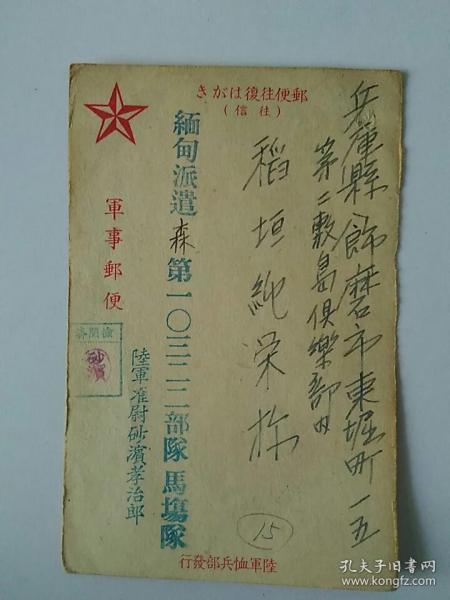 兵庫縣飾磨市東堀町一五
第二敷島俱樂部内
稻垣純栄様
郵便往復はがき
(往信)
緬甸派遣森第一〇三二二部隊馬場隊
陸軍准尉砂濱孝治郎
軍事郵便
檢閲濟
砂濱
15
陸軍恤兵部發行
孔夫子旧书网